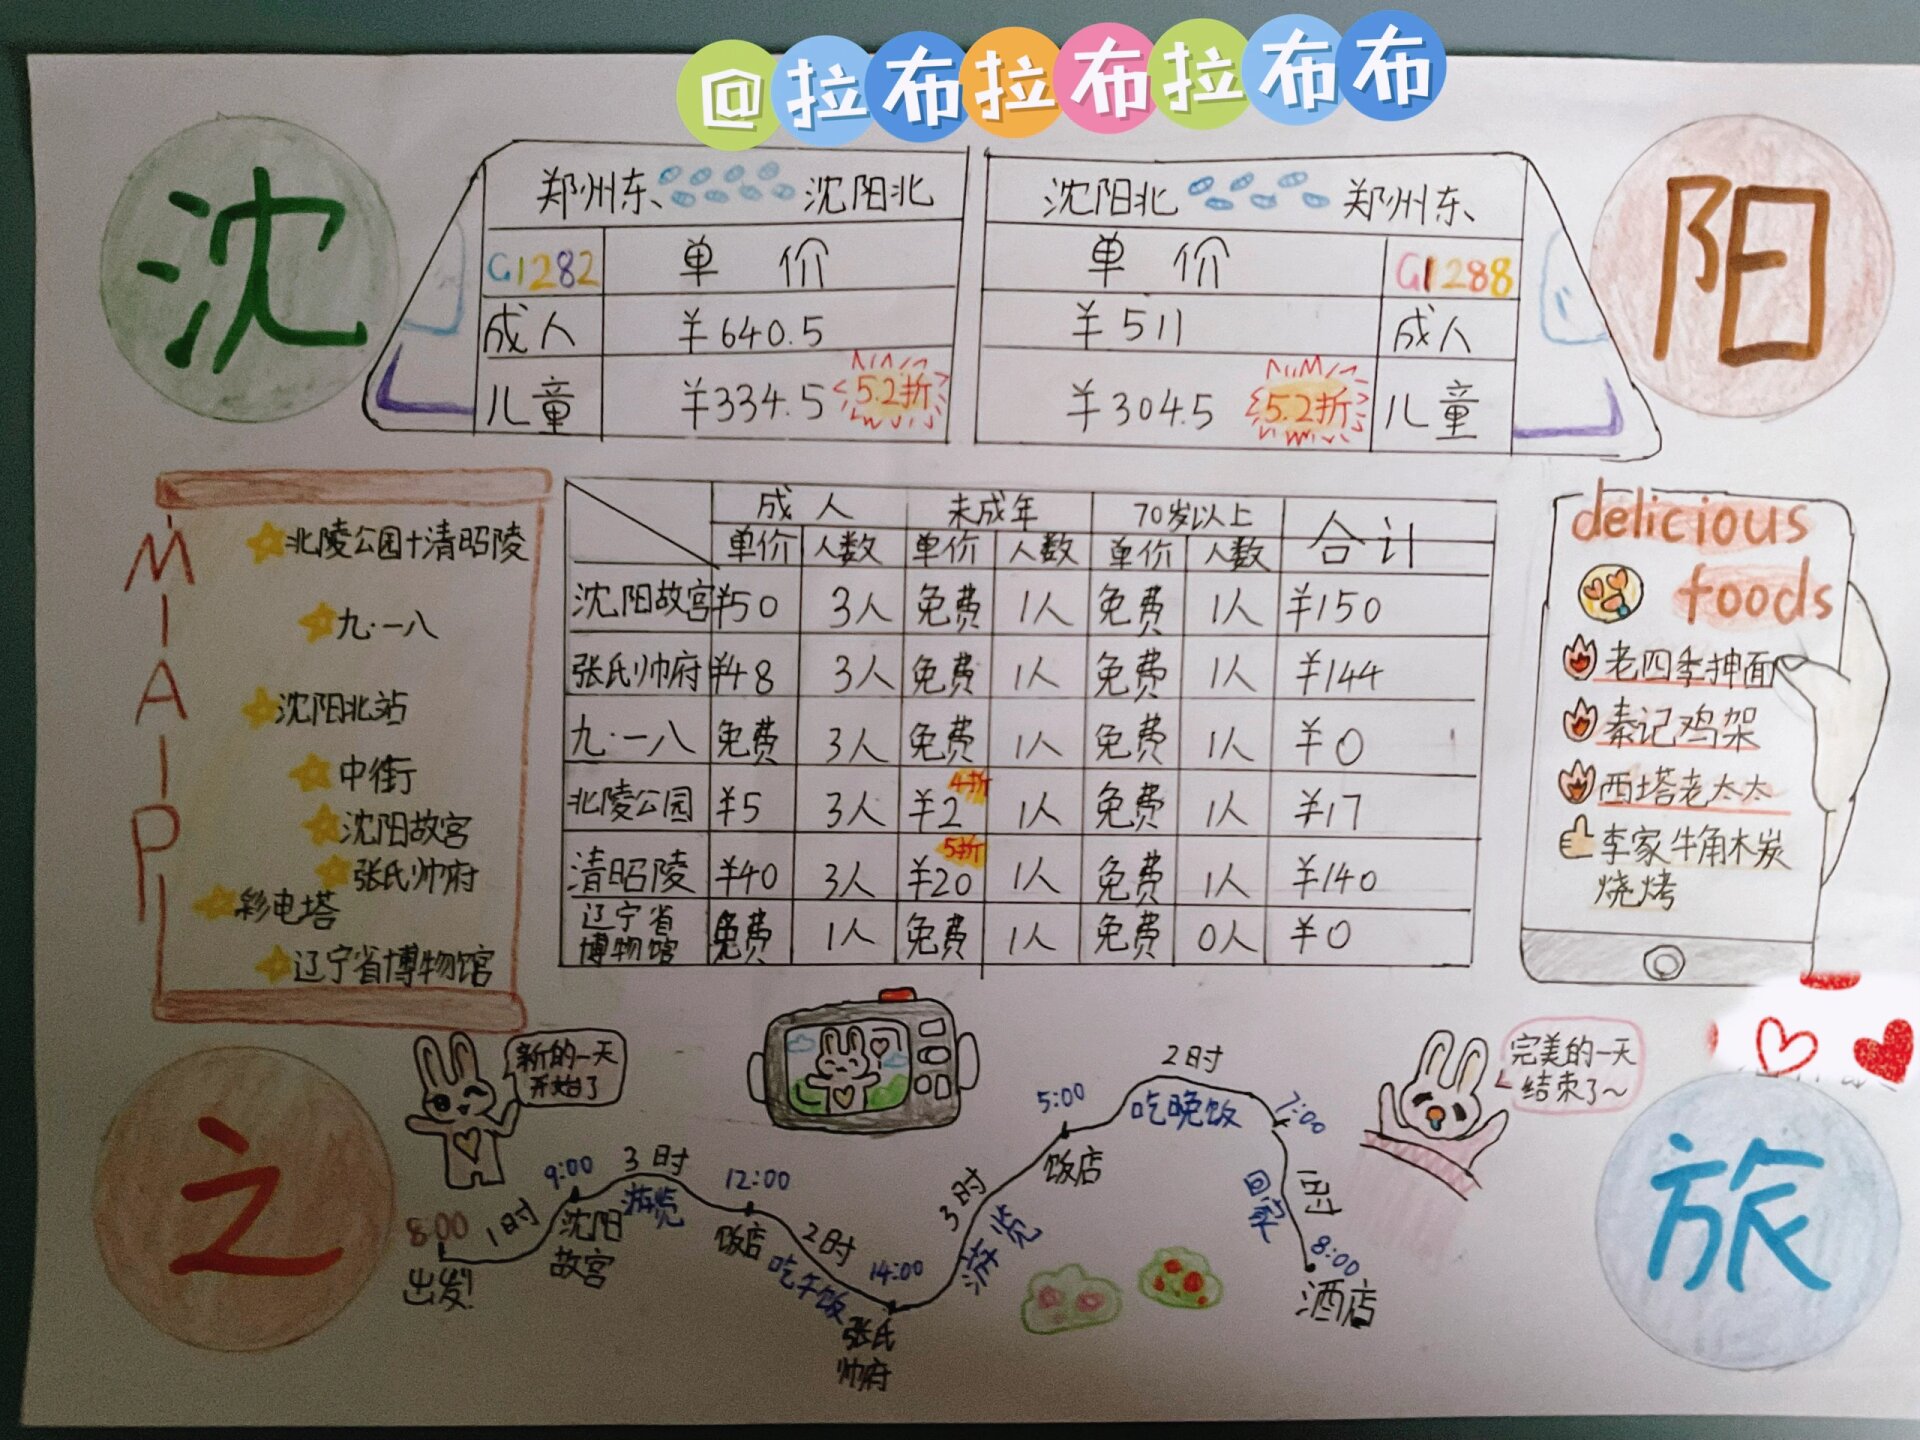 @拉布拉布拉布布
沈
阳
郑州东 沈阳北
G1282 单价
成人 ¥640.5
儿童 ¥334.5 5.2折
沈阳北 郑州东
单价 G1288
¥511 成人
¥304.5 5.2折 儿童
MAP
北陵公园+清昭陵
九·一八
沈阳北站
中街
沈阳故宫
张氏帅府
彩电塔
辽宁省博物馆
成人 未成年 70岁以上 合计
单价 人数 单价 人数 单价 人数
沈阳故宫 ¥50 3人 免费 1人 免费 1人 ¥150
张氏帅府 ¥48 3人 免费 1人 免费 1人 ¥144
九·一八 免费 3人 免费 1人 免费 1人 ¥0
北陵公园 ¥5 3人 ¥2 4折 1人 免费 1人 ¥17
清昭陵 ¥40 3人 ¥20 5折 1人 免费 1人 ¥140
辽宁省
博物馆 免费 1人 免费 1人 免费 0人 ¥0
delicious
foods
老四季抻面
秦记鸡架
西塔老太太
李家牛角木炭
烧烤
之
旅
新的一天
开始了
8:00
出发!
1时
9:00
沈阳
故宫
3时
游览
12:00
饭店
2时
吃午饭
14:00
张氏
帅府
3时
游览
5:00
饭店
2时
吃晚饭
7:00
1时
回家
8:00
酒店
完美的一天
结束了~